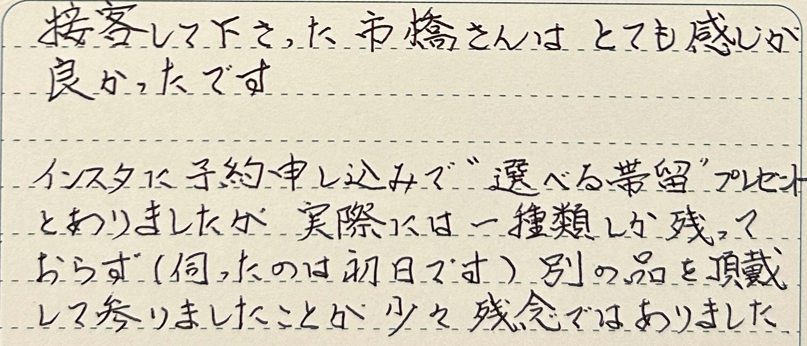 接客して下さった市橋さんはとても感じが
良かったです
インスタに予約申し込みで"選べる帯留"プレゼント
とありましたが実際には一種類しか残って
おらず(伺ったのは初日です)別の品を頂戴
して参りましたことが少々残念ではありました